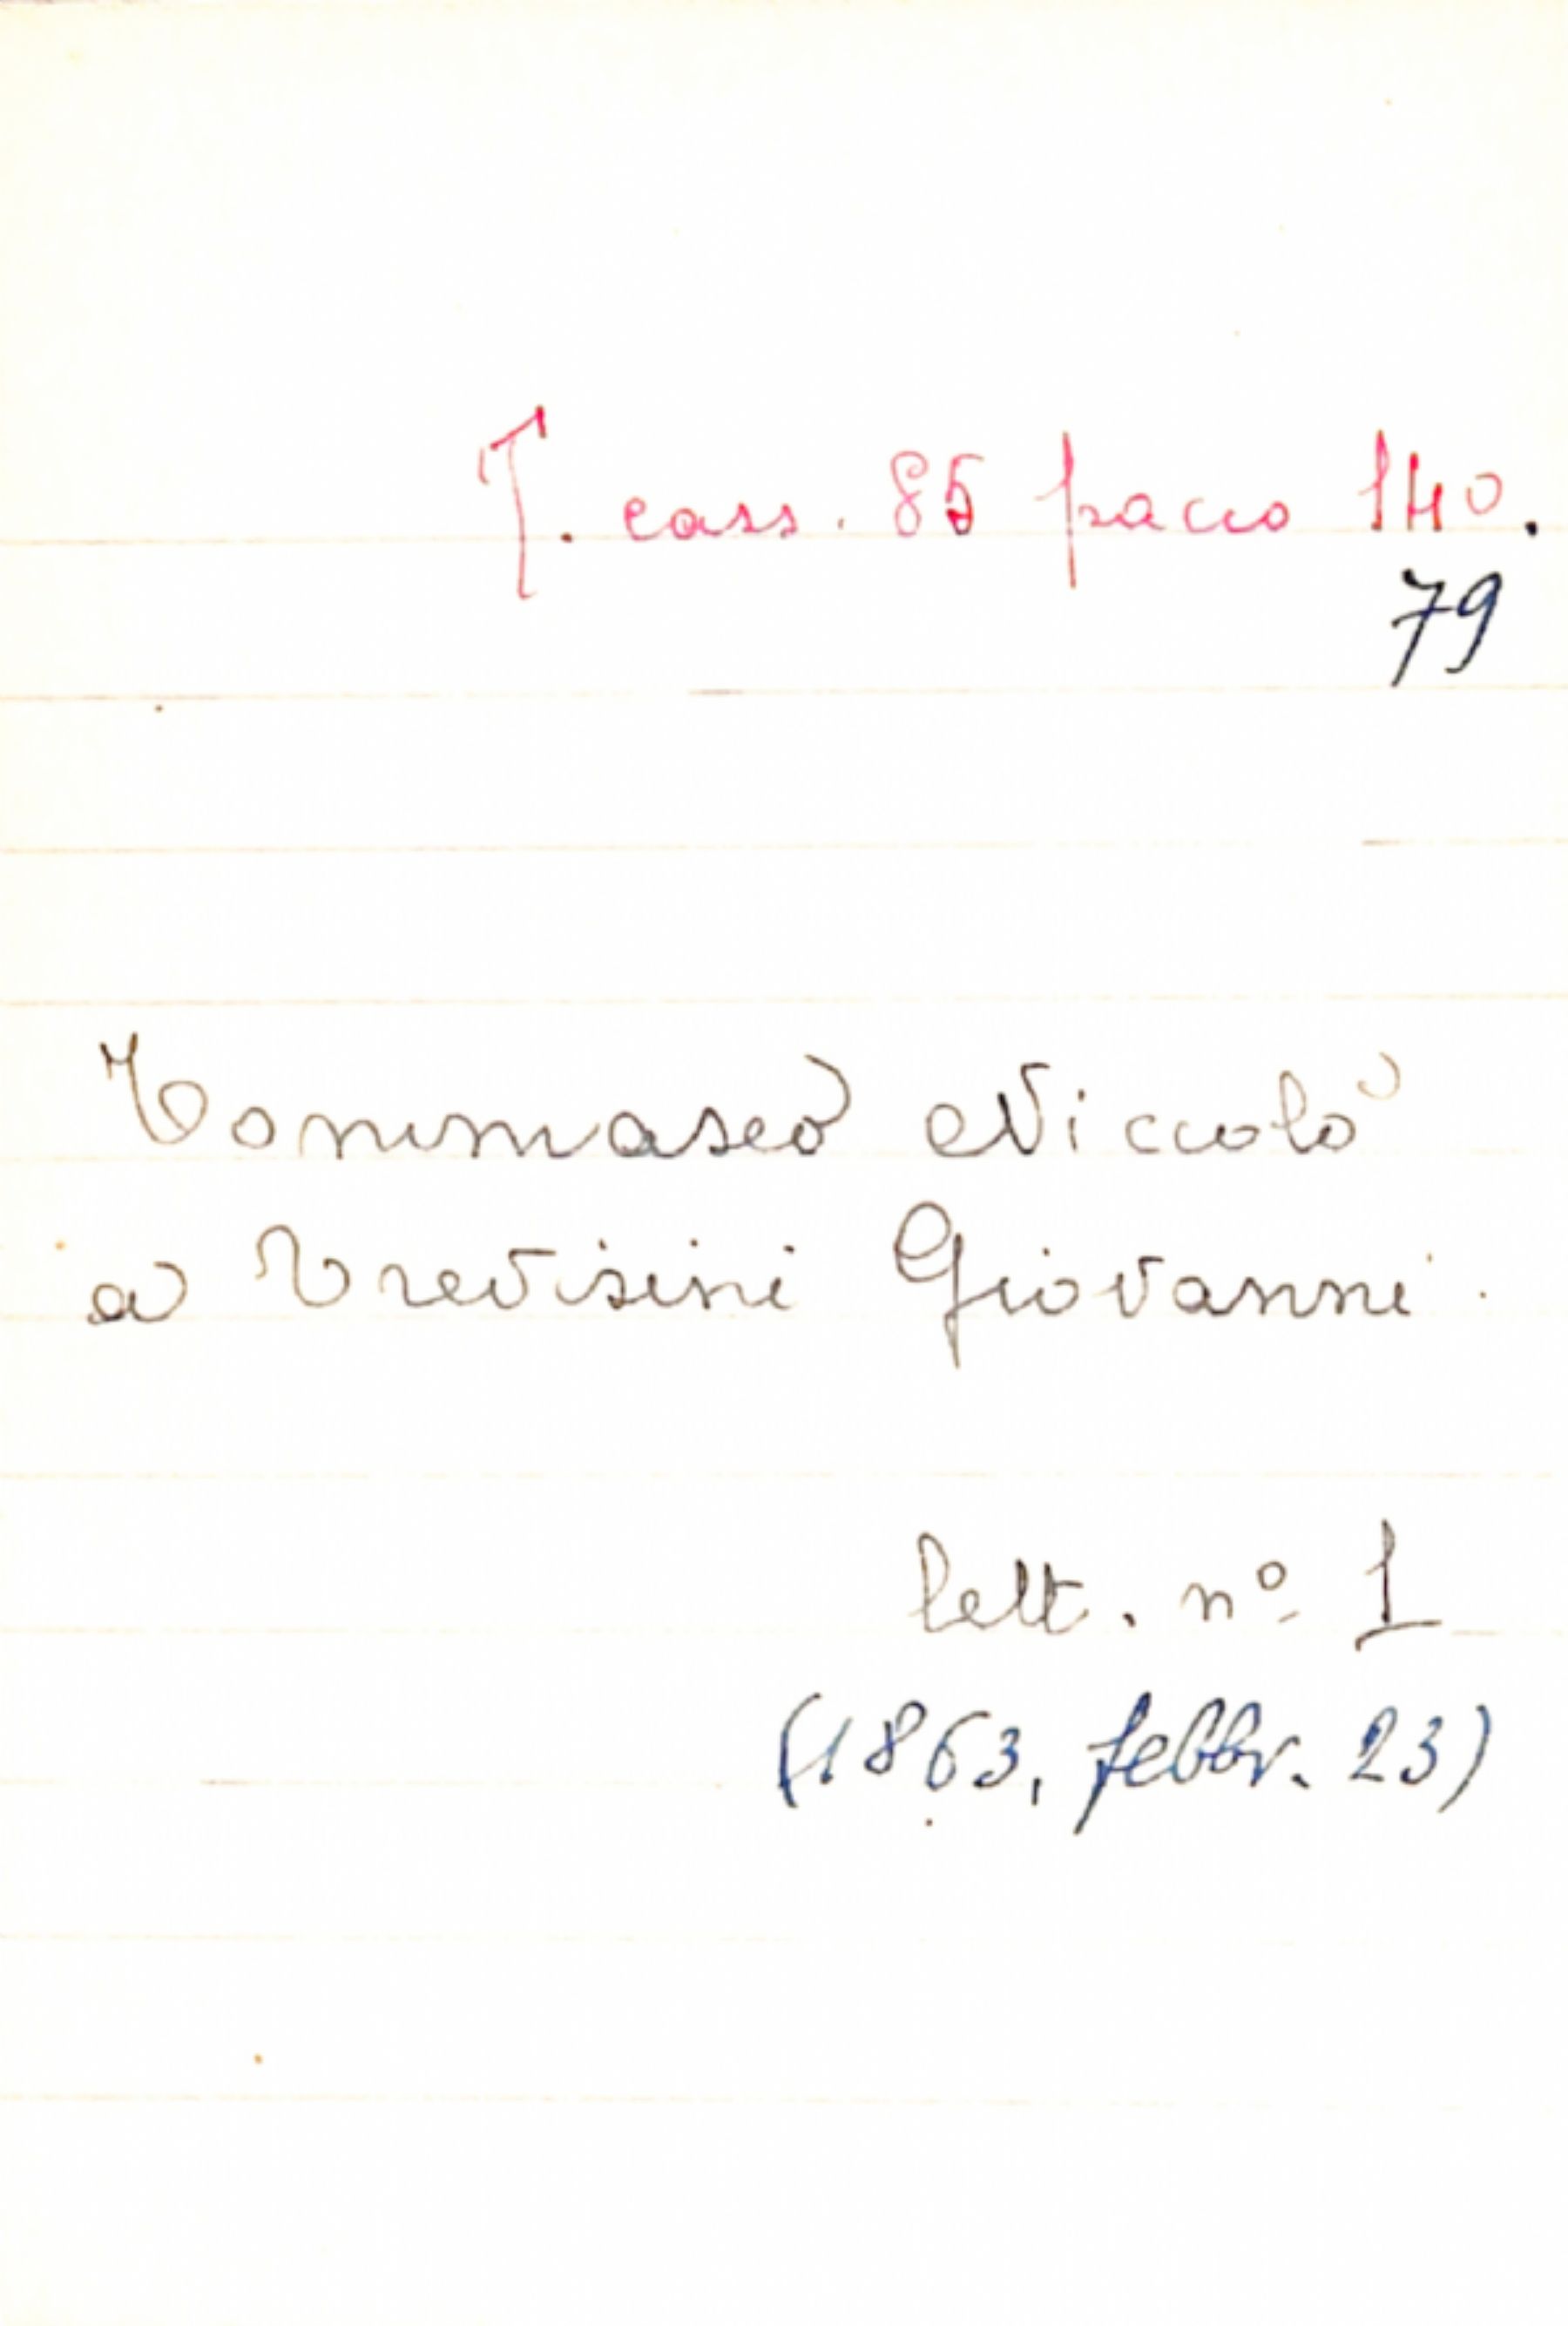 T. cass. 85 pacco 140.
79
Tommaseo Niccolò
a Trevisini Giovanni.
lett. nº 1
(1863, febbr. 23)